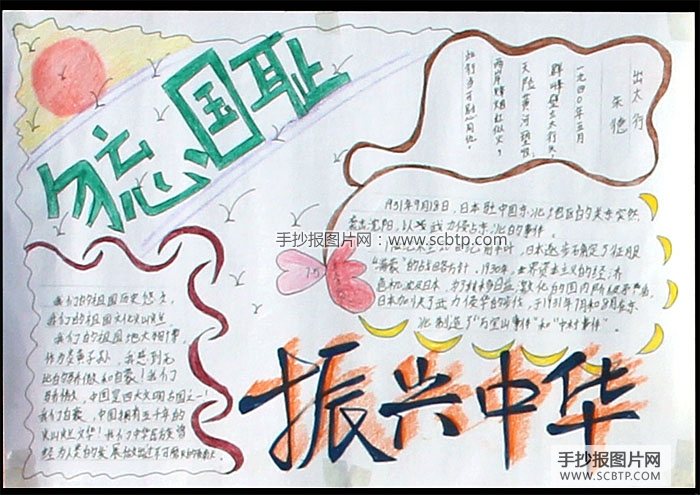 勿忘国耻
出太行
朱德
一九四〇年五月
群峰壁立太行头，
天险黄河一望收。
两岸烽烟红似火，
此行当可慰同仇。
1931年9月18日，日本驻中国东北地区的关东军突然
袭击沈阳，以武力侵占东北的事件。
日本逐步确定了征服
"满蒙"的战略方针，1930年，世界资本主义的经济
危机波及日本，为了转移日益激化的国内阶级矛盾，
日本加快了武力侵华的步伐，于1931年7月和8月在东
北制造了"万宝山事件"和"中村事件"。
手抄报图片网：www.scbtp.com
我们的祖国历史悠久，
我们的祖国文化灿烂
我们的祖国地大物博，
作为炎黄子孙，我感到无
比的骄傲和自豪！我们
骄傲，中国是四大文明古国之一！
我们自豪，中国拥有五千年的
灿烂文华！我们中华民族曾
经为人类的发展做出过不可磨灭的贡献。
振兴中华
手抄报图片网
SCBTP.COM